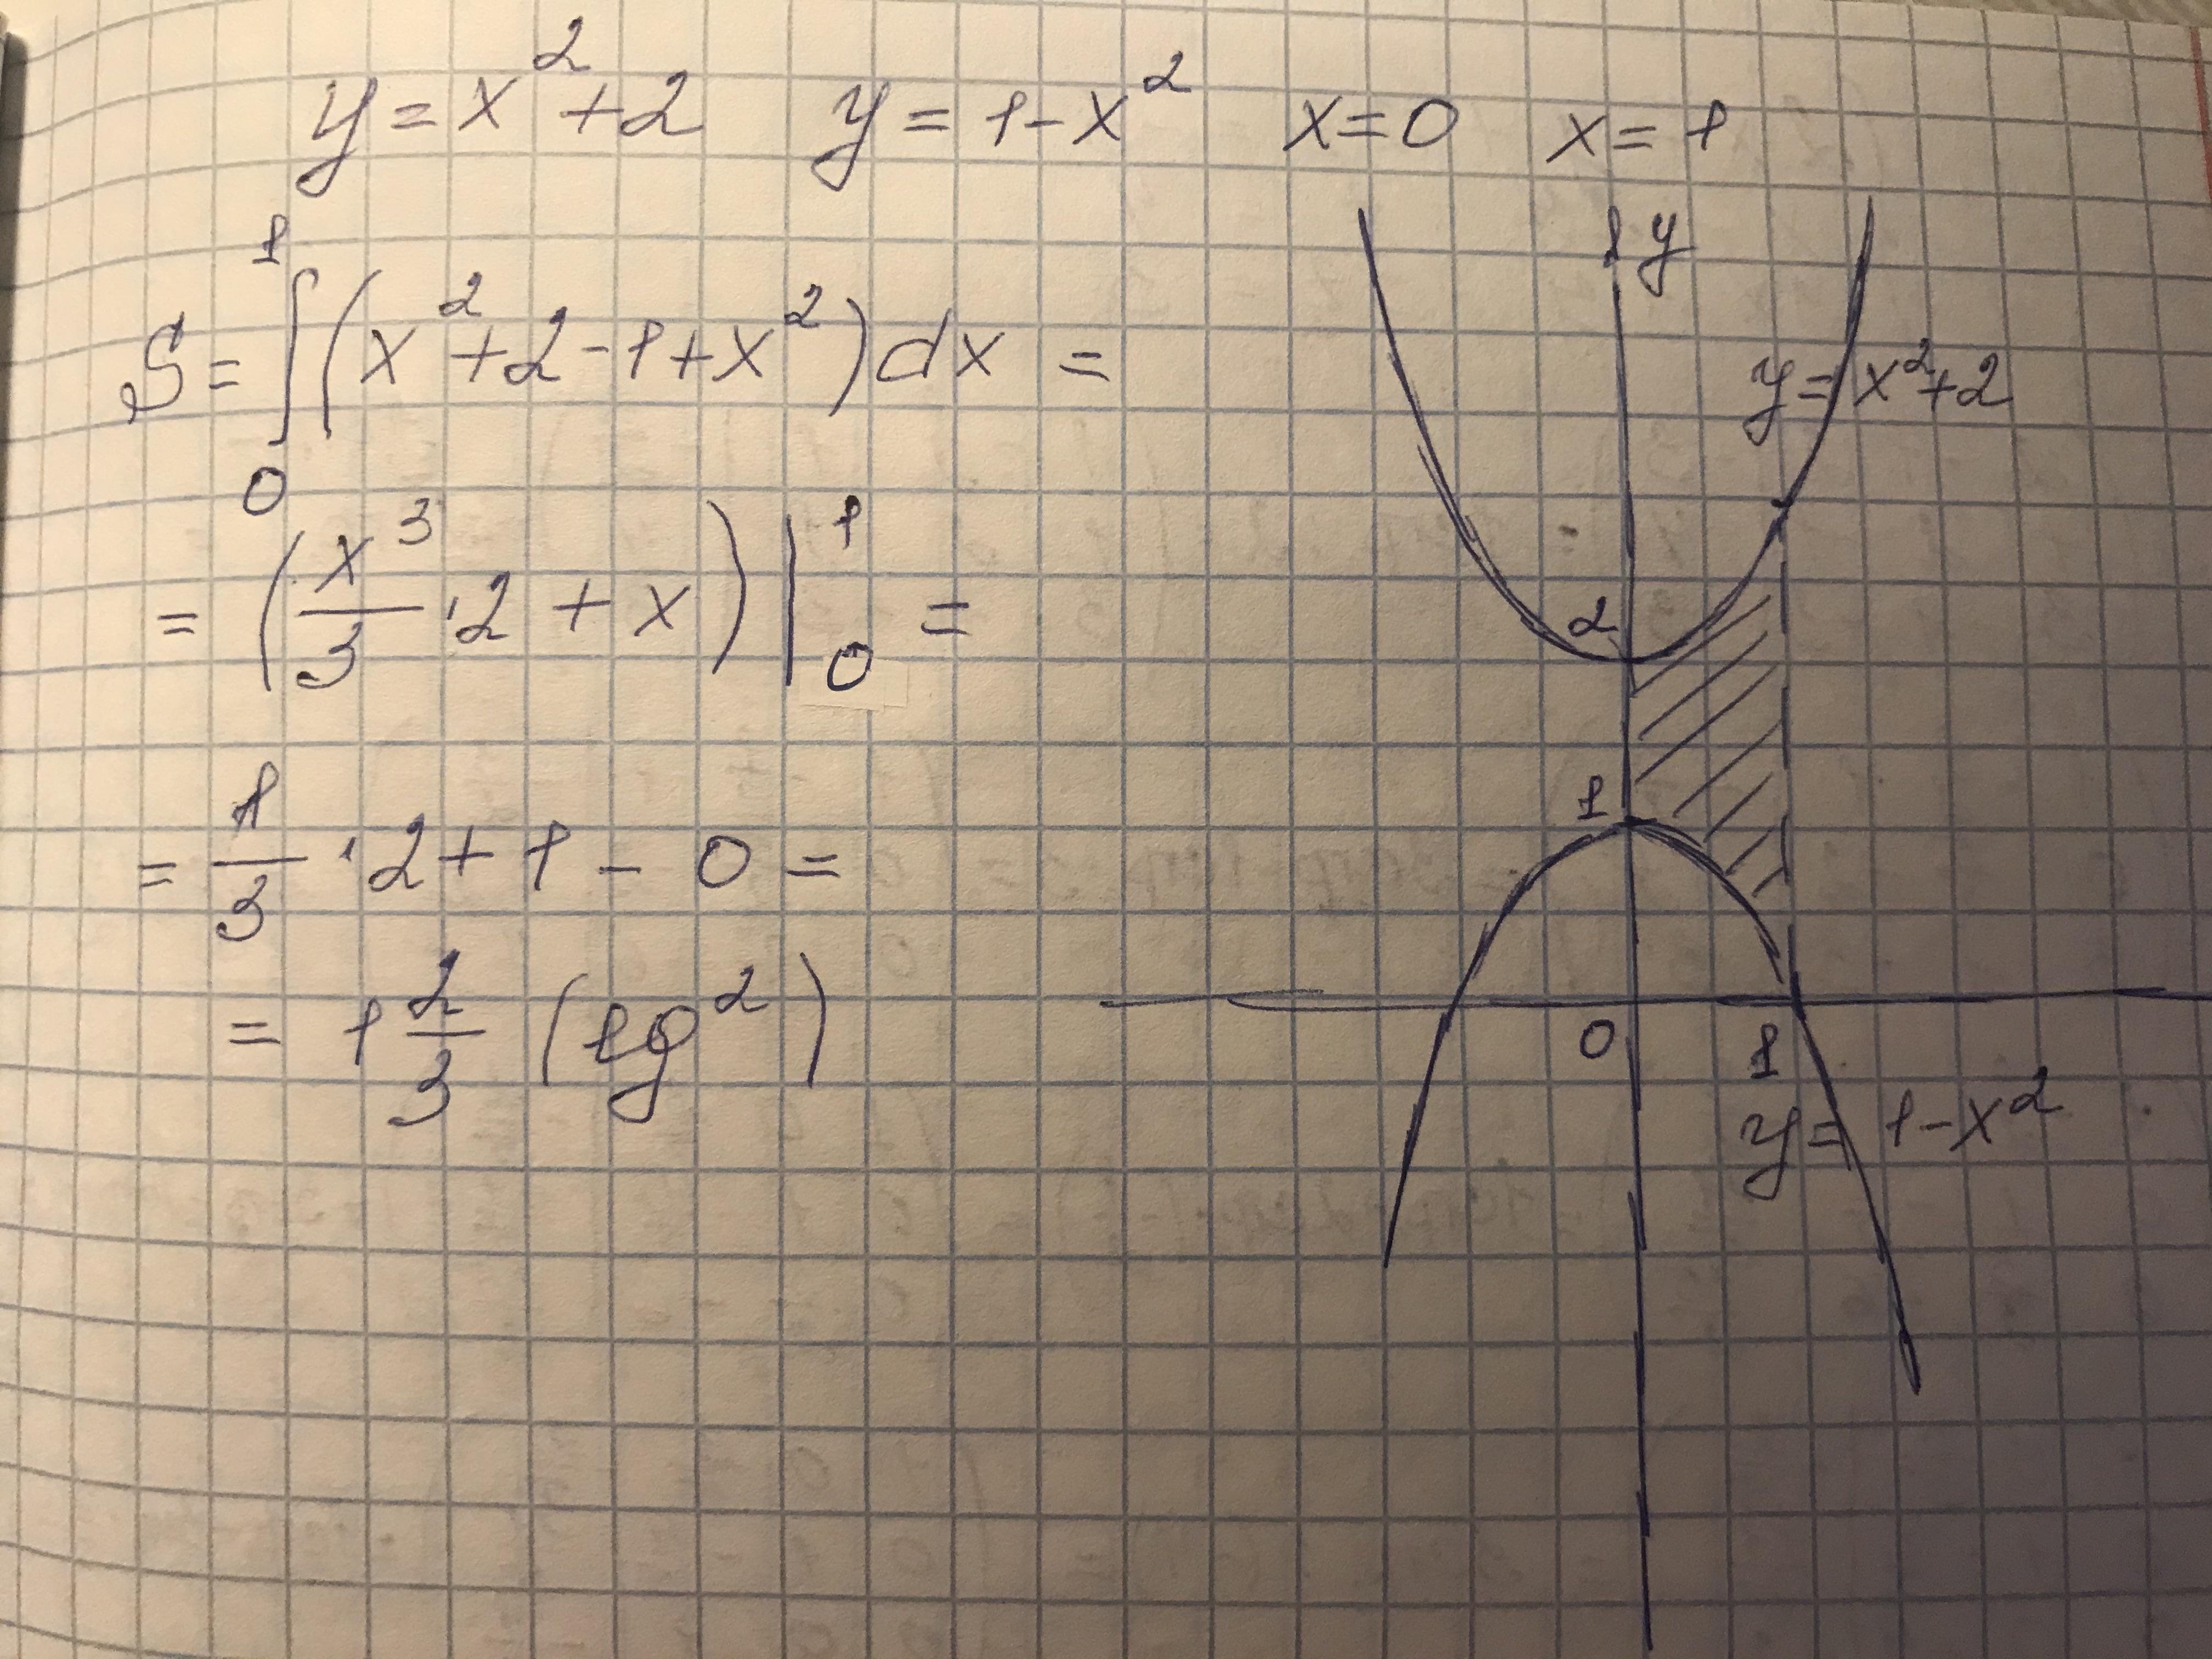 y = x² + 2 y = 1 - x² x = 0 x = 1
S = ∫₀¹ (x² + 2 - 1 + x²) dx =
= (x³/3 · 2 + x) |₀¹ =
= 1/3 · 2 + 1 - 0 =
= 1 2/3 (ед²)
y
y = x² + 2
2
1
0 1
y = 1 - x²